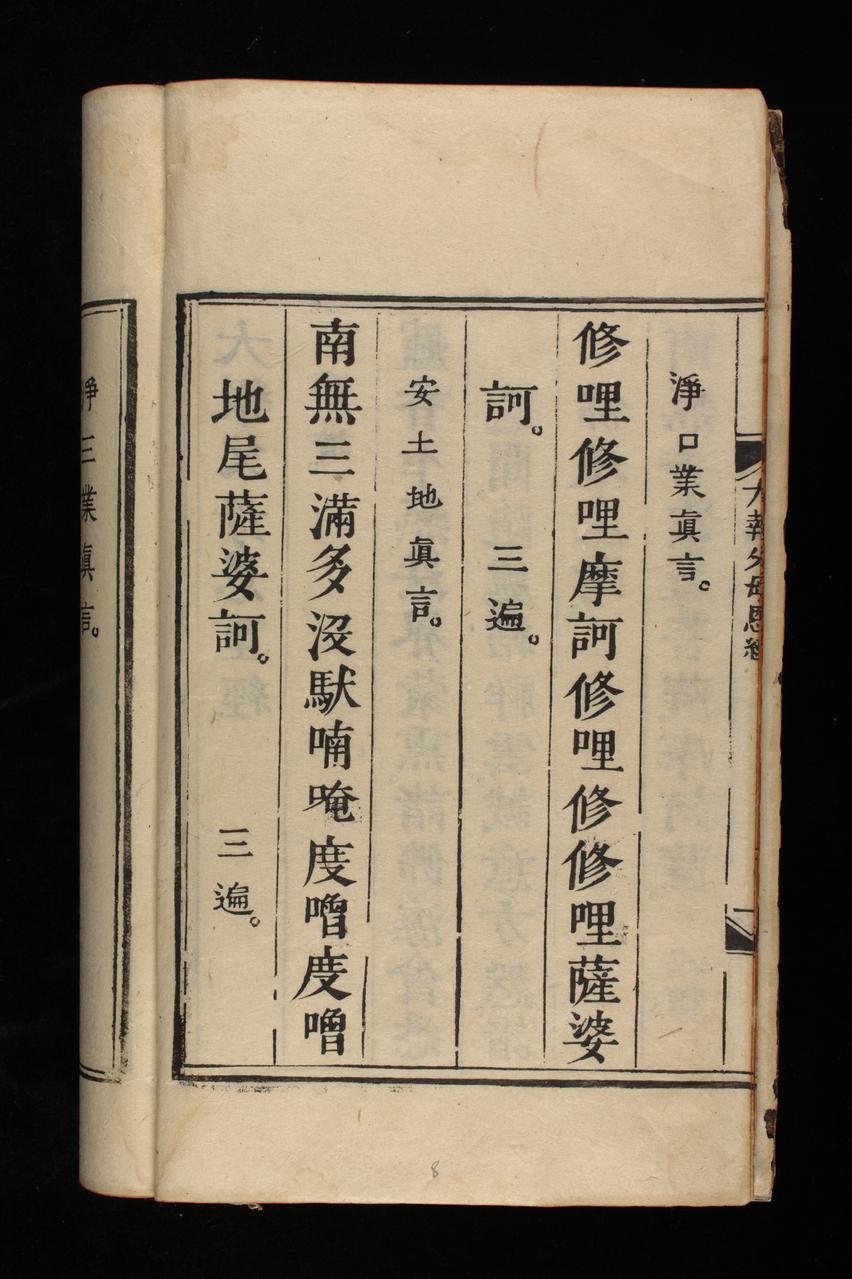 大報父母恩經
淨口業眞言。
修哩修哩摩訶修哩修修哩薩婆
訶。三遍。
安土地眞言。
南無三滿多沒馱喃唵度嚕度嚕
地尾薩婆訶。三遍。
淨三業眞言。
8